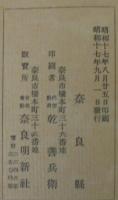 昭和十七年八月廿五日印刷
昭和十七年九月一日發行
奈良縣
奈良市橋本町三十六番地
印刷者 乾善兵衞
奈良市橋本町三十六番地
取賣所 奈良明新社